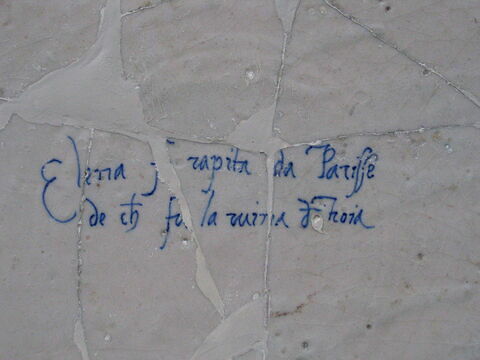 Elena f rapita da Parisse
de ch fu la ruina d Troia